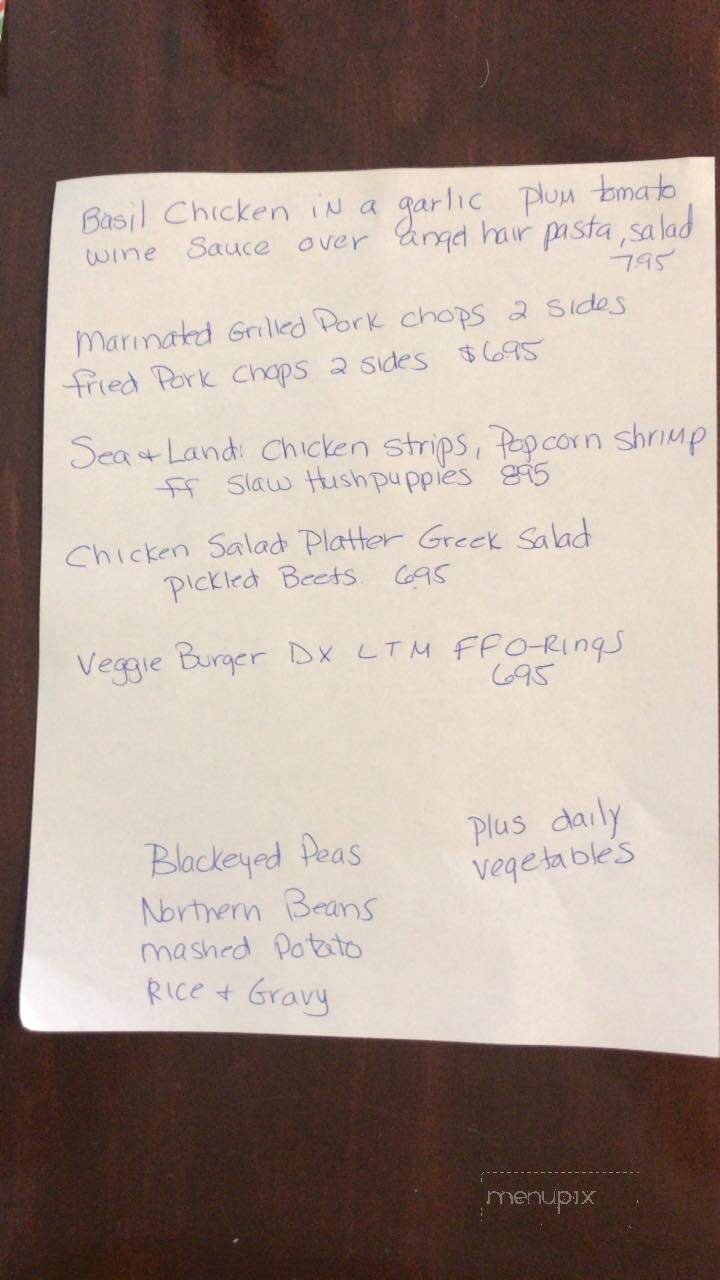 Basil Chicken in a garlic plum tomato
wine Sauce over angel hair pasta, salad
7.95
Marinated Grilled Pork chops 2 sides
fried Pork Chops 2 sides $6.95
Sea & Land: Chicken strips, Popcorn shrimp
ff Slaw Hushpuppies 895
Chicken Salad Platter Greek Salad
pickled Beets 6.95
Veggie Burger DX LTM FF O-Rings
695
plus daily
vegetables
Blackeyed Peas
Northern Beans
mashed Potato
Rice + Gravy
menupix